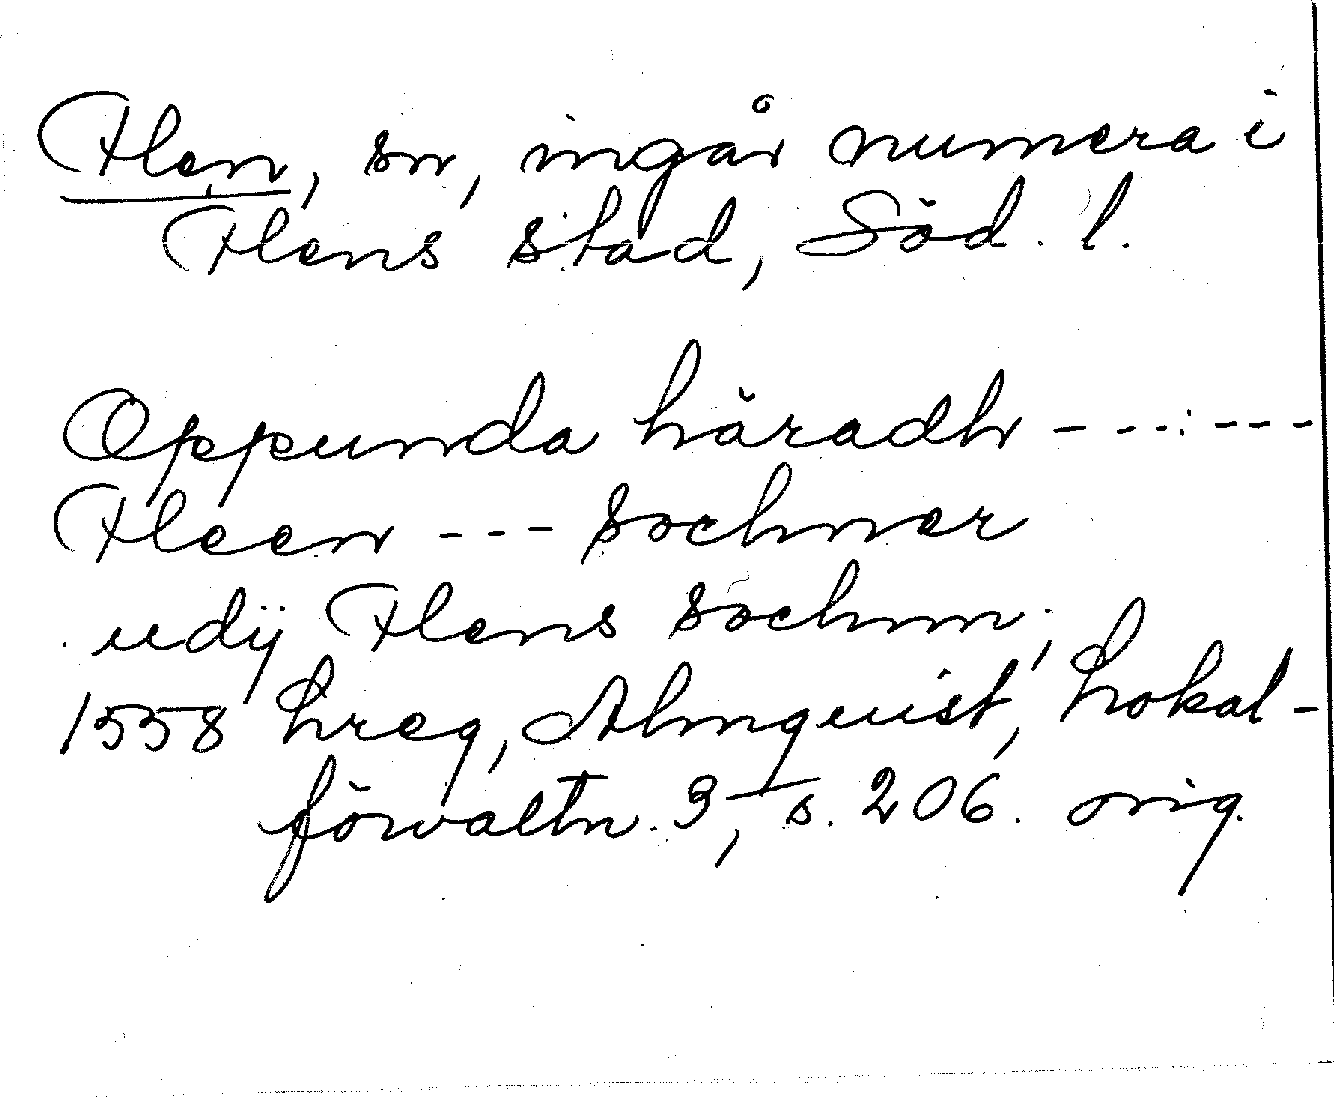 Flen, sn, ingår numera i
Flens stad, Söd. l.
Oppunda häradh --- ---
Fleen --- sochner
udij Flens sochnn,
1558 hreg, Almquist, Lokal-
förvaltn. 3, s. 206. orig.